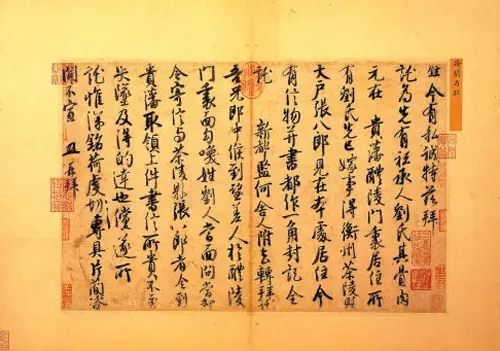 今有私誠特茲拜
託為先有祗承人劉氏其骨肉
元在 貴藩醴陵門裏居住所
有劉氏先已嫁事得衡州茶陵縣
大戶張八郎見在本處居住今
有信物并書都作一角封記全
託 新都監何舍人附去轉拜
吾兄郎中候到望差人於醴陵
門裏面勾喚姓劉人當面問當却
令寄信與茶陵縣張八郎者令到
貴藩取領上件書信所貴不至
失墜及得的達也儻遂所
託惟深銘荷虔切專具片簡咨
聞不宣 再拜